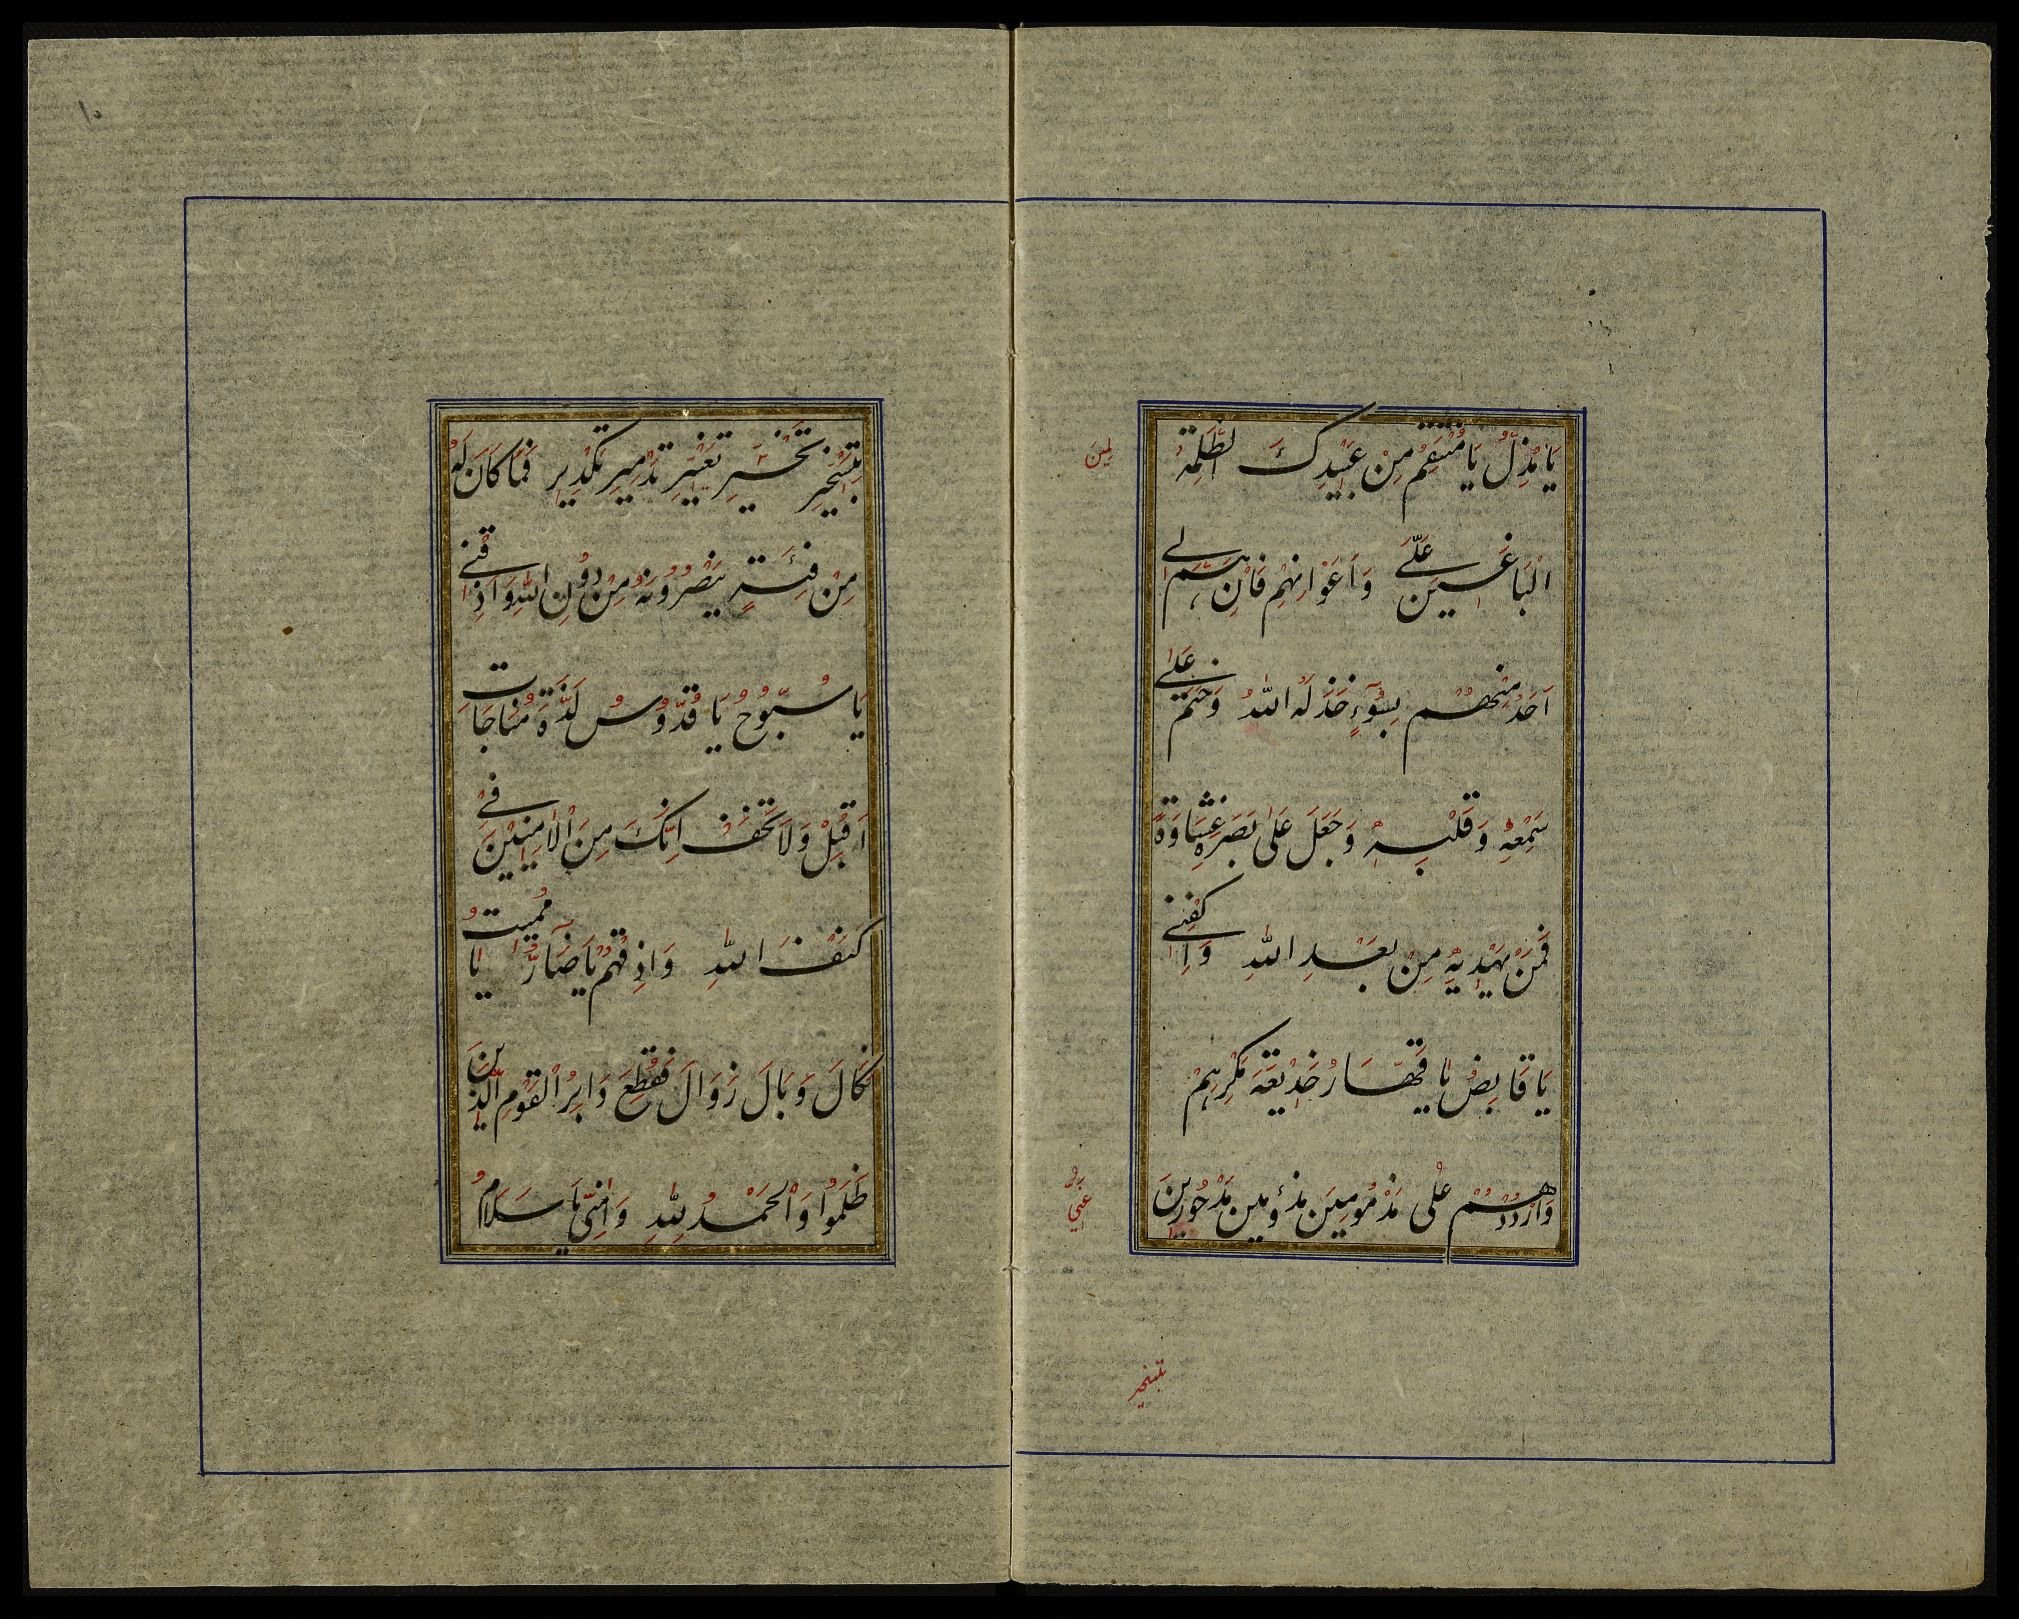 يَا مُذِلُّ يَا مُنْتَقِمُ مِنْ عَبِيْدِكَ الظَّلَمَةِ
لمين
الْبَاغِيْنَ عَلَيَّ وَاَعْوَانِهِمْ فَاِنْ هَمَّ لِي
اَحَدٌ مِنْهُمْ بِسُوٓءٍ خَذَلَهُ اللهُ وَخَتَمَ عَلٰى
سَمْعِهِ وَقَلْبِهٖ وَجَعَلَ عَلٰى بَصَرِهٖ غِشَاوَةً
فَمَنْ يَهْدِيْهِ مِنْ بَعْدِ اللهِ وَاكْفِنِيْ
يَا قَابِضُ يَا قَهَّارُ خَدِيْعَةَ مَكْرِهِمْ
وَارْدُدْهُمْ عَنِّي مَذْمُوْمِيْنَ مَذْئُوْمِيْنَ مَدْحُوْرِيْنَ
عني
بتخسير
بِتَخْسِيْرِ تَغْيِيْرِ تَدْمِيْرِ تَكْدِيْرٍ فَمَا كَانَ لَهُ
مِنْ فِئَةٍ يَنْصُرُوْنَهُ مِنْ دُوْنِ اللهِ وَاَذِقْنِيْ
يَا سُبُّوْحُ يَا قُدُّوْسُ لَذَّةَ مُنَاجَاتِ
اَقْبِلْ وَلَا تَخَفْ اِنَّكَ مِنَ الْاٰمِنِيْنَ فِيْ
كَنَفِ اللهِ وَاَذِقْهُمْ يَا ضَآرُّ يَا مُمِيْتُ
نَكَالَ وَبَالَ زَوَالَ فَقُطِعَ دَابِرُ الْقَوْمِ الَّذِيْنَ
ظَلَمُوْا وَالْحَمْدُ لِلّٰهِ وَاٰمِنِّيْ يَا سَلَامُ
١٠